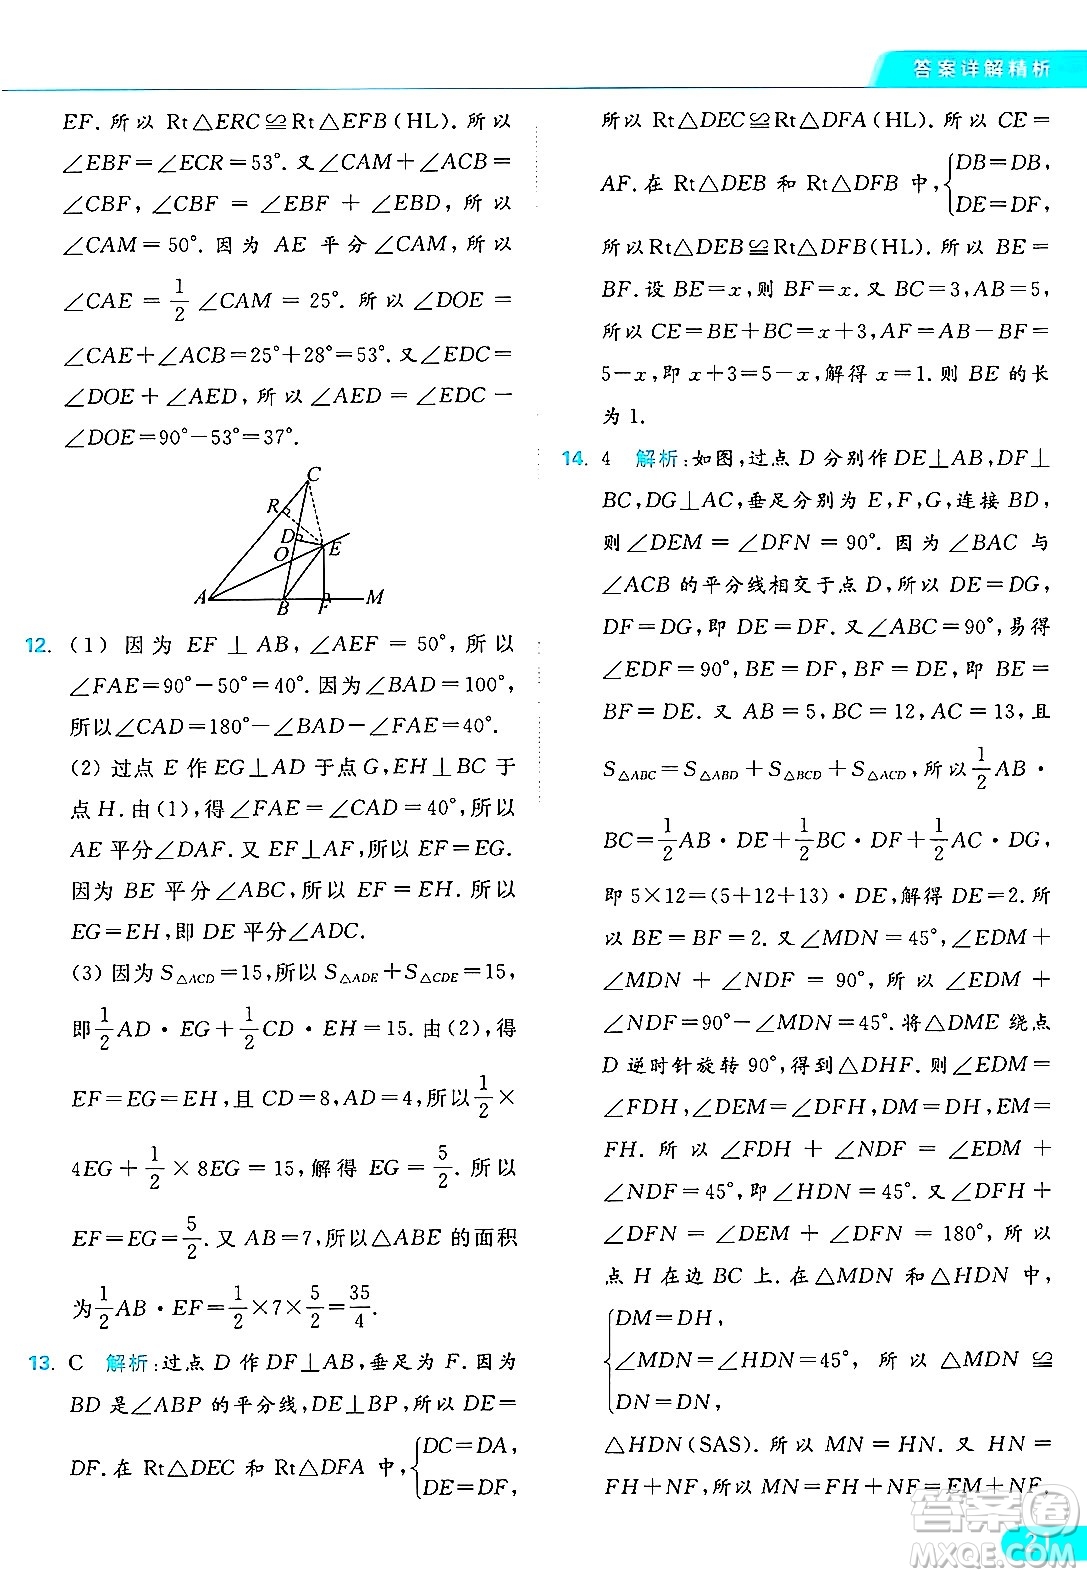 答案详解精析
EF.所以 Rt△ERC≌Rt△EFB(HL).所以
∠EBF=∠ECR=53°.又∠CAM+∠ACB=
∠CBF,∠CBF=∠EBF+∠EBD,所以
∠CAM=50°.因为 AE 平分∠CAM,所以
∠CAE=1/2∠CAM=25°.所以∠DOE=
∠CAE+∠ACB=25°+28°=53°.又∠EDC=
∠DOE+∠AED,所以∠AED=∠EDC-
∠DOE=90°-53°=37°.
C
R
D
O
E
A
B
F
M
12.(1)因为 EF⊥AB,∠AEF=50°,所以
∠FAE=90°-50°=40°.因为∠BAD=100°,
所以∠CAD=180°-∠BAD-∠FAE=40°.
(2)过点 E 作 EG⊥AD 于点 G,EH⊥BC 于
点 H.由(1),得∠FAE=∠CAD=40°,所以
AE 平分∠DAF.又 EF⊥AF,所以 EF=EG.
因为 BE 平分∠ABC,所以 EF=EH.所以
EG=EH,即 DE 平分∠ADC.
(3)因为 S△ACD=15,所以 S△ADE+S△CDE=15,
即1/2AD·EG+1/2CD·EH=15.由(2),得
EF=EG=EH,且 CD=8,AD=4,所以1/2×
4EG+1/2×8EG=15,解得 EG=5/2.所以
EF=EG=5/2.又 AB=7,所以△ABE 的面积
为1/2AB·EF=1/2×7×5/2=35/4.
13. C 解析:过点 D 作 DF⊥AB,垂足为 F.因为
BD 是∠ABP 的平分线,DE⊥BP,所以 DE=
DF.在 Rt△DEC 和 Rt△DFA 中,{DC=DA,
DE=DF,
所以 Rt△DEC≌Rt△DFA(HL).所以 CE=
AF.在 Rt△DEB 和 Rt△DFB 中,{DB=DB,
DE=DF,
所以Rt△DEB≌Rt△DFB(HL).所以 BE=
BF.设 BE=x,则 BF=x.又 BC=3,AB=5,
所以 CE=BE+BC=x+3,AF=AB-BF=
5-x,即 x+3=5-x,解得 x=1.则 BE 的长
为 1.
14. 4 解析:如图,过点 D 分别作 DE⊥AB,DF⊥
BC,DG⊥AC,垂足分别为 E,F,G,连接 BD,
则∠DEM=∠DFN=90°.因为∠BAC 与
∠ACB 的平分线相交于点 D,所以 DE=DG,
DF=DG,即 DE=DF.又∠ABC=90°,易得
∠EDF=90°,BE=DF,BF=DE,即 BE=
BF=DE.又 AB=5,BC=12,AC=13,且
S△ABC=S△ABD+S△BCD+S△ACD,所以1/2AB·
BC=1/2AB·DE+1/2BC·DF+1/2AC·DG,
即 5×12=(5+12+13)·DE,解得 DE=2.所
以 BE=BF=2.又∠MDN=45°,∠EDM+
∠MDN+∠NDF=90°,所以∠EDM+
∠NDF=90°-∠MDN=45°.将△DME 绕点
D 逆时针旋转 90°,得到△DHF.则∠EDM=
∠FDH,∠DEM=∠DFH,DM=DH,EM=
FH.所以∠FDH+∠NDF=∠EDM+
∠NDF=45°,即∠HDN=45°.又∠DFH+
∠DFN=∠DEM+∠DFN=180°,所以
点 H 在边 BC 上.在△MDN 和△HDN 中,
{DM=DH,
∠MDN=∠HDN=45°,所以△MDN≌
DN=DN,
△HDN(SAS).所以 MN=HN.又 HN=
FH+NF,所以 MN=FH+NF=EM+NF.
21
答案圈
MXQE.COM